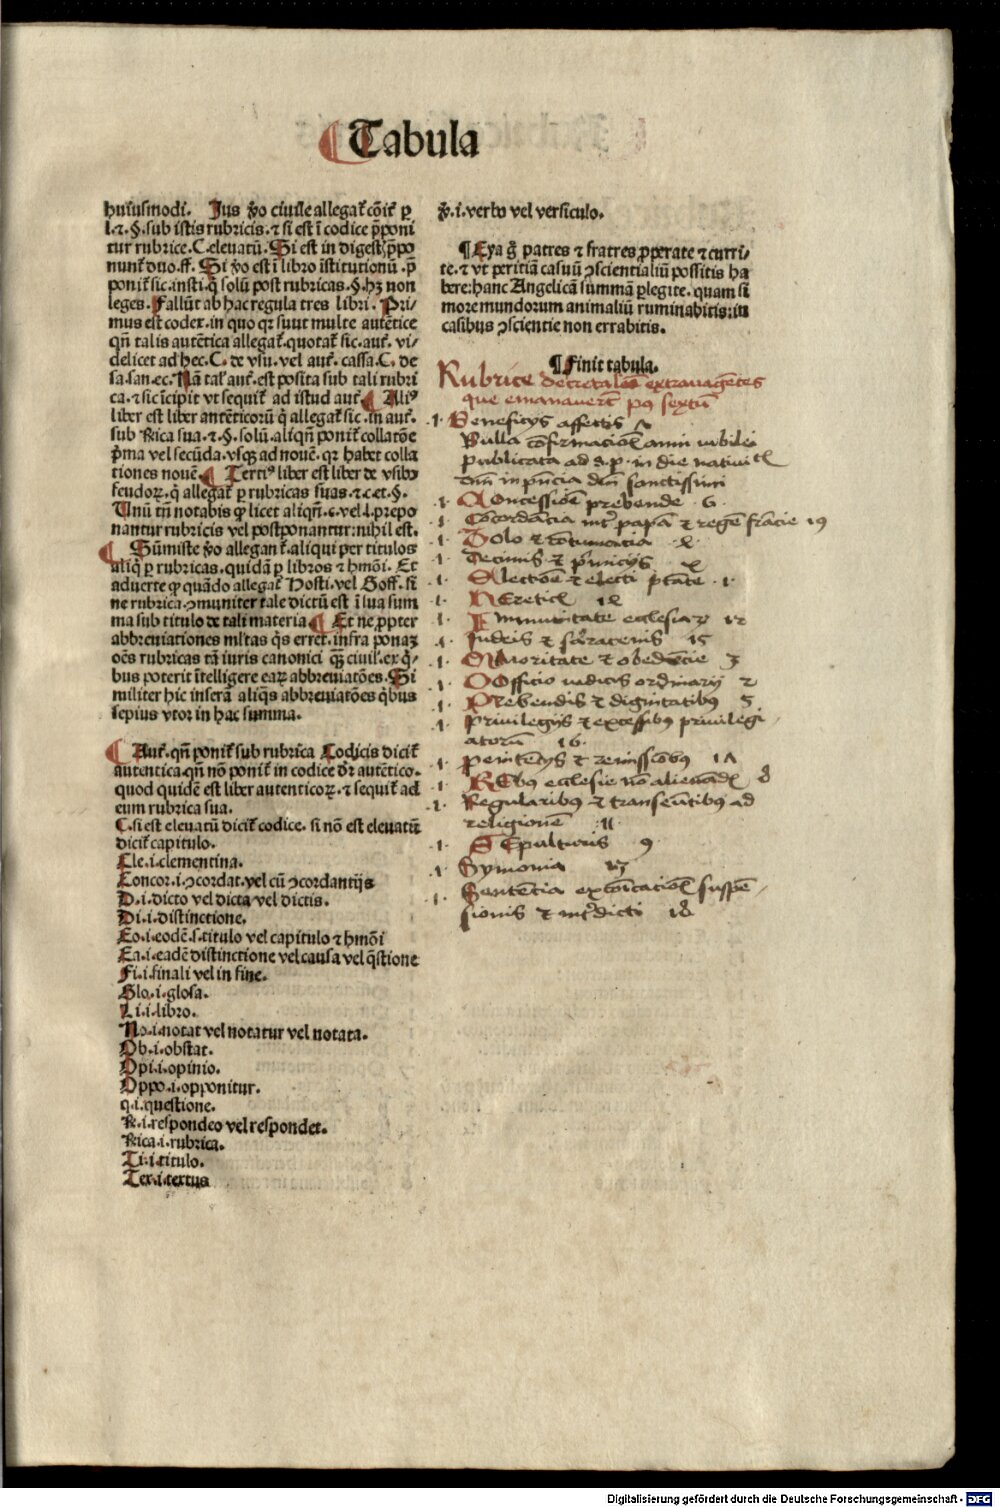 Tabula
huiusmodi. Jus ꝟo ciuile allegat᷑ cōit᷑ ꝑ
l.⁊.§.sub istis rubricis.⁊ si est ī codice p̄poni
tur rubrice.C.eleuatū.Si est in digest᷑ p̄po
nunt᷑ duo.ff.Si ꝟo est ī libro īstitutionū.p̄
ponit᷑ sic.insti.q̄ solū post rubricas.§.hꝫ non
leges.Fallūt ab hac regula tres libri.Pri-
mus est codex.in quo qꝛ sunt multe autētice
qn̄ talis autētica allegat᷑.quotat᷑ sic.aut᷑.vi-
delicet ad hec.C.de vsu.vel aut᷑.cassa.C.de
sa.san.ec.Nā tal᷑ aut᷑.est posita sub tali rubri
ca.⁊ sic īcipit vt sequit᷑ ad istud aut᷑ Aliꝰ
liber est liber autēticorū q̄ allegat᷑ sic.in aut᷑.
sub Rica sua.⁊.§.solū.aliqn̄ ponit᷑ collatōe
p̄ma vel secūda.vsqꝫ ad nouē.qꝛ habet colla
tiones nouē. Tertiꝰ liber est liber de vsibꝰ
feudoꝝ.q̄ allegat᷑ ꝑ rubricas suas.⁊.c.et.§.
Unū tn̄ notabis ꝙ licet aliqn̄.c.vel.l.prepo
nantur rubricis vel postponantur:nihil est.
Sūmiste ꝟo allegant᷑.aliqui per titulos
aliq̄ ꝑ rubricas.quidā ꝑ libros ⁊ hmōi. Et
aduerte ꝙ quādo allegat᷑ Hosti.vel Goff.si
ne rubrica.ꝯmuniter tale dictū est ī sua sum
ma sub titulo de tali materia Et ne ꝓpter
abbreuiationes ml̄tas q̄s erret.infra ponaꝫ
oēs rubricas tā iuris canonici qꝫ̄ ciuil᷑.ex q̄-
bus poterit ītelligere eaꝝ abbreuiatōes.Si
militer hic inserā aliq̄s abbreuiatōes q̄bus
sepius vtor in hac summa.
Aut᷑.qn̄ ponit᷑ sub rubrica Codicis dicit᷑
autentica.qn̄ nō ponit᷑ in codice dr̄ autētico.
quod quidē est liber autenticoꝝ.⁊ sequit᷑ ad
eum rubrica sua.
C.si est eleuatū dicit᷑ codice. si nō est eleuatū
dicit᷑ capitulo.
Cle.i.clementina.
Concor.i.ꝯcordat.vel cū ꝯcordantijs
D.i.dicto vel dicta vel dictis.
Di.i.distinctione.
Eo.i.eodē.s.titulo vel capitulo ⁊ hmōi
Ea.i.eadē distinctione vel causa vel q̄stione
Fi.i.finali vel in fine.
Glo.i.glosa.
Li.i.libro.
No.i.notat vel notatur vel notata.
Ob.i.obstat.
Opi.i.opinio.
Oppo.i.opponitur.
q.i.questione.
R.i.respondeo vel respondet.
Rica.i.rubrica.
Ti.i.titulo.
Tex.i.textus
ꝟ.i.verbo vel versiculo.
¶Eya g̊ patres ⁊ fratres ꝓperate ⁊ curri-
te.⁊ vt peritiā casuū ꝯscientialiū possitis ha
bere:hanc Angelicā summā ꝑlegite.quam si
more mundorum animaliū ruminabitis:in
casibus ꝯscientie non errabitis.
¶Finit tabula.
Rubrice decretales extrauagētes
que emanauert᷑ pꝰ sextū
1 Beneficijs affectis
Bulla cōfirmacioīs anni iubilei
publicata ad s.p. in die natiuit
dn̄i in pn̄cia dn̄i sanctissimi
1 Concessiōe prebende 6
1 Cōcordācia int᷑ papā ⁊ regē francie 19
1 Dolo ⁊ cōtumacia
1 Decimis ⁊ p̄micijs
1 Electiōe ⁊ electi ptāte 1
1 HEretic᷑
1 Immunitate ecclesiaꝝ 12
1 Iudeis ⁊ saracenis 15
1 Maioritate ⁊ obediēcie 3
1 OOfficio iudicis ordinarij 2
1 Prebendis ⁊ dignitatibꝰ 5
1 priuilegijs ⁊ excessibꝰ priuilegi
atorū 16
1 penitēcijs ⁊ remissiōibꝰ
1 REbꝰ ecclesie nō alienādis 8
1 Regularibꝰ ⁊ transeūtibꝰ ad
religionē 11
1 SEpulturis 9
1 Symonia
1 Sententia excōicatiōis suspē-
sionis ⁊ int᷑dicti 18
Digitalisierung gefördert durch die Deutsche Forschungsgemeinschaft - DFG